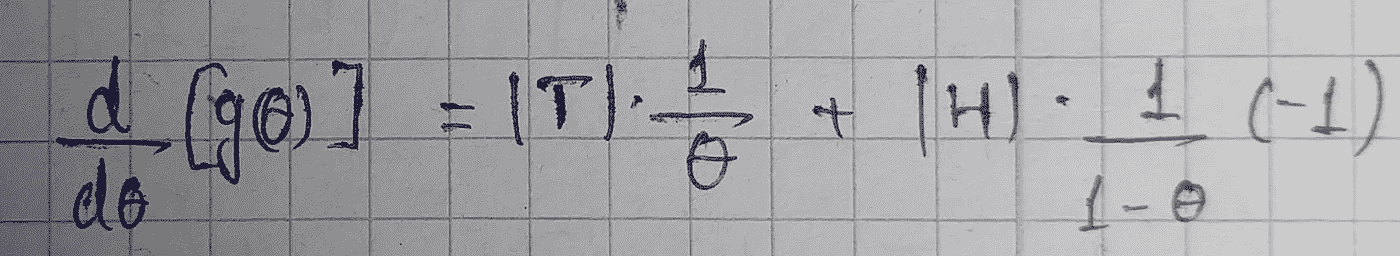 d/dθ [g(θ)] = |T| · 1/θ + |H| · 1/(1 - θ) (-1)